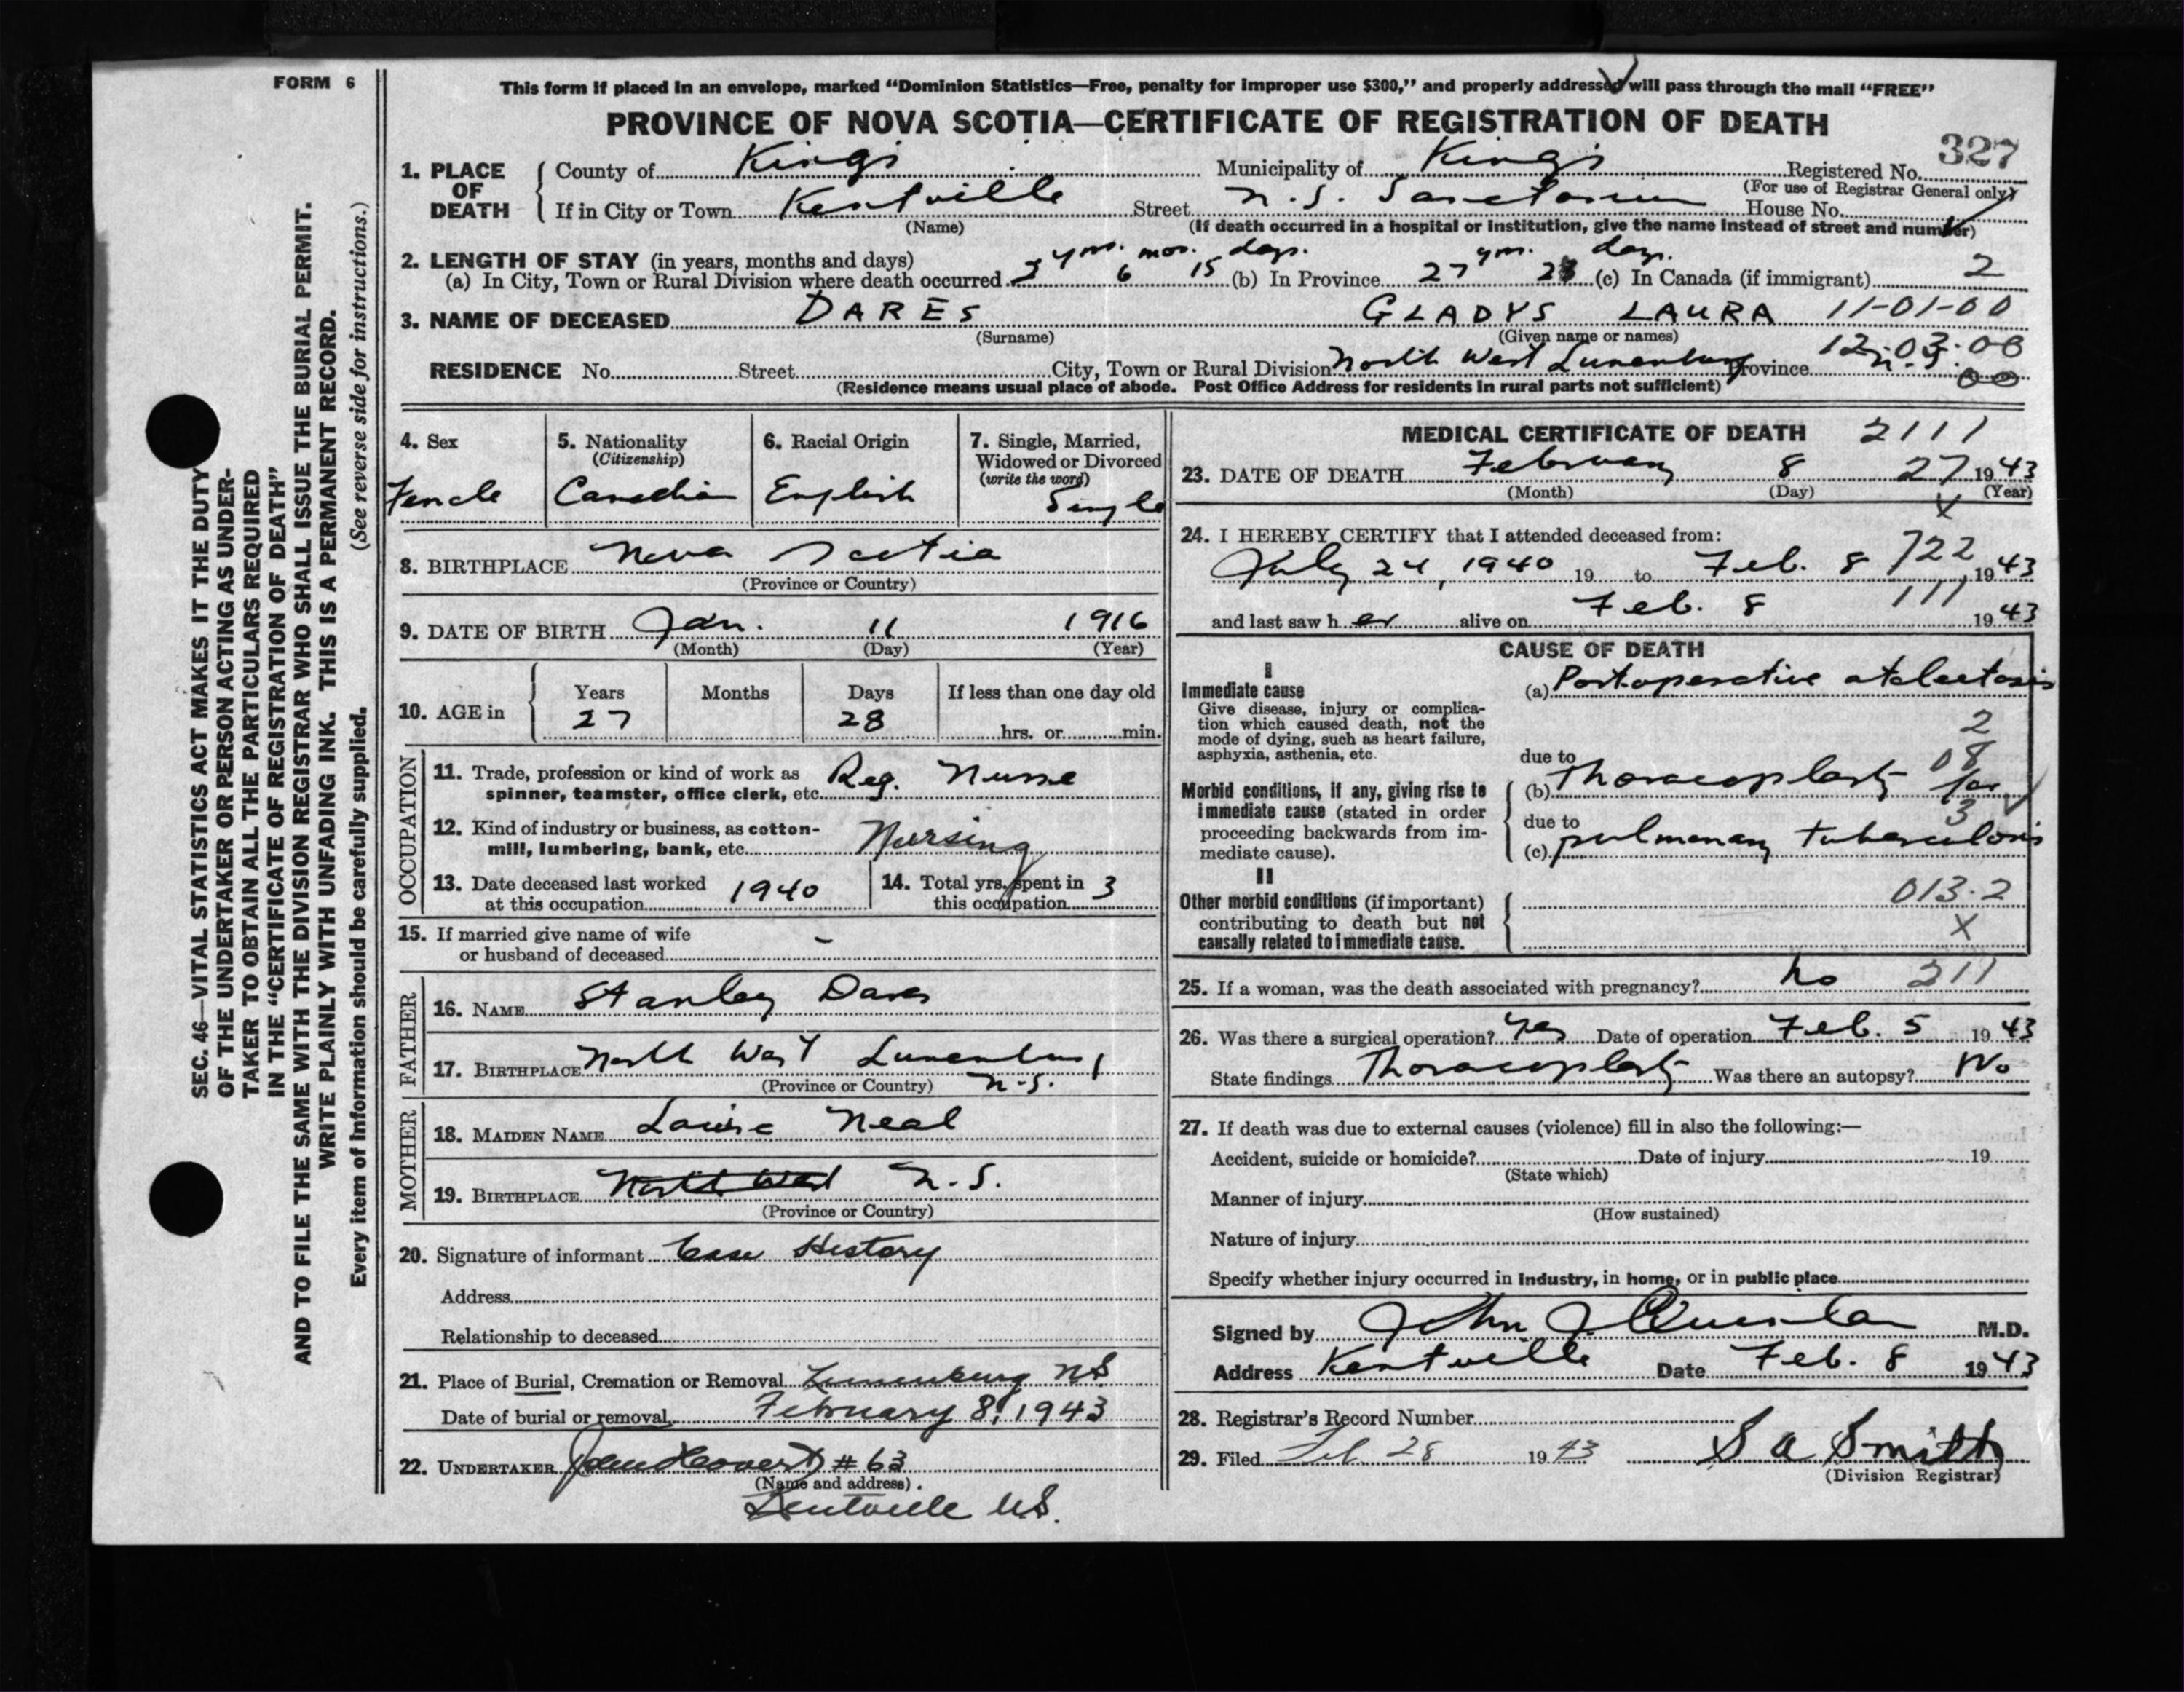 FORM 6
This form if placed in an envelope, marked "Dominion Statistics—Free, penalty for improper use $300," and properly addressed will pass through the mail "FREE"
PROVINCE OF NOVA SCOTIA—CERTIFICATE OF REGISTRATION OF DEATH
327
1. PLACE OF DEATH
County of Kings Municipality of Kings Registered No.
(For use of Registrar General only)
If in City or Town Kentville Street N.S. Sanatorium House No.
(Name) (If death occurred in a hospital or institution, give the name instead of street and number)
2. LENGTH OF STAY (in years, months and days) yrs. mos. days. yrs. days.
(a) In City, Town or Rural Division where death occurred 2 6 15 (b) In Province 27 28 (c) In Canada (if immigrant) 2
3. NAME OF DECEASED DARES GLADYS LAURA 11-01-00
(Surname) (Given name or names) 12-03-00
RESIDENCE No. Street City, Town or Rural Division North West Lunenburg Province N.S. 00
(Residence means usual place of abode. Post Office Address for residents in rural parts not sufficient)
SEC. 46—VITAL STATISTICS ACT MAKES IT THE DUTY
OF THE UNDERTAKER OR PERSON ACTING AS UNDER-
TAKER TO OBTAIN ALL THE PARTICULARS REQUIRED
IN THE "CERTIFICATE OF REGISTRATION OF DEATH"
AND TO FILE THE SAME WITH THE DIVISION REGISTRAR WHO SHALL ISSUE THE BURIAL PERMIT.
WRITE PLAINLY WITH UNFADING INK. THIS IS A PERMANENT RECORD.
Every item of information should be carefully supplied. (See reverse side for instructions.)
4. Sex
Female
5. Nationality
(Citizenship)
Canadian
6. Racial Origin
English
7. Single, Married,
Widowed or Divorced
(write the word)
Single
8. BIRTHPLACE Nova Scotia
(Province or Country)
9. DATE OF BIRTH Jan. 11 1916
(Month) (Day) (Year)
10. AGE in
Years Months Days If less than one day old
27 28 hrs. or min.
OCCUPATION
11. Trade, profession or kind of work as
spinner, teamster, office clerk, etc. Reg. Nurse
12. Kind of industry or business, as cotton-
mill, lumbering, bank, etc. Nursing
13. Date deceased last worked
at this occupation 1940
14. Total yrs. spent in
this occupation 3
15. If married give name of wife
or husband of deceased –
FATHER
16. NAME Stanley Dares
17. BIRTHPLACE North West Lunenburg
(Province or Country) N.S.
MOTHER
18. MAIDEN NAME Louise Neal
19. BIRTHPLACE North West N.S.
(Province or Country)
20. Signature of informant Case History
Address
Relationship to deceased
21. Place of Burial, Cremation or Removal Lunenburg NS
Date of burial or removal February 8, 1943
22. UNDERTAKER # 63
(Name and address).
Kentville NS.
MEDICAL CERTIFICATE OF DEATH 2111
23. DATE OF DEATH February 8 27 1943
(Month) (Day) (Year)
X
24. I HEREBY CERTIFY that I attended deceased from:
July 24, 1940 19 to Feb. 8 722 1943
and last saw her alive on Feb. 8 111 1943
CAUSE OF DEATH
I
Immediate cause
Give disease, injury or complica-
tion which caused death, not the
mode of dying, such as heart failure,
asphyxia, asthenia, etc.
(a) Postoperative atelectasis
2
08
due to
Morbid conditions, if any, giving rise to
immediate cause (stated in order
proceeding backwards from im-
mediate cause).
(b) Thoracoplasty for
3
due to
(c) pulmonary tuberculosis
II
Other morbid conditions (if important)
contributing to death but not
causally related to immediate cause.
013.2
X
25. If a woman, was the death associated with pregnancy? No 211
26. Was there a surgical operation? Yes Date of operation Feb. 5 1943
State findings Thoracoplasty Was there an autopsy? No
27. If death was due to external causes (violence) fill in also the following:—
Accident, suicide or homicide? Date of injury 19
(State which)
Manner of injury
(How sustained)
Nature of injury
Specify whether injury occurred in industry, in home, or in public place
Signed by John J. Quinlan M.D.
Address Kentville Date Feb. 8 1943
28. Registrar's Record Number
29. Filed Feb 28 1943 S A Smith
(Division Registrar)